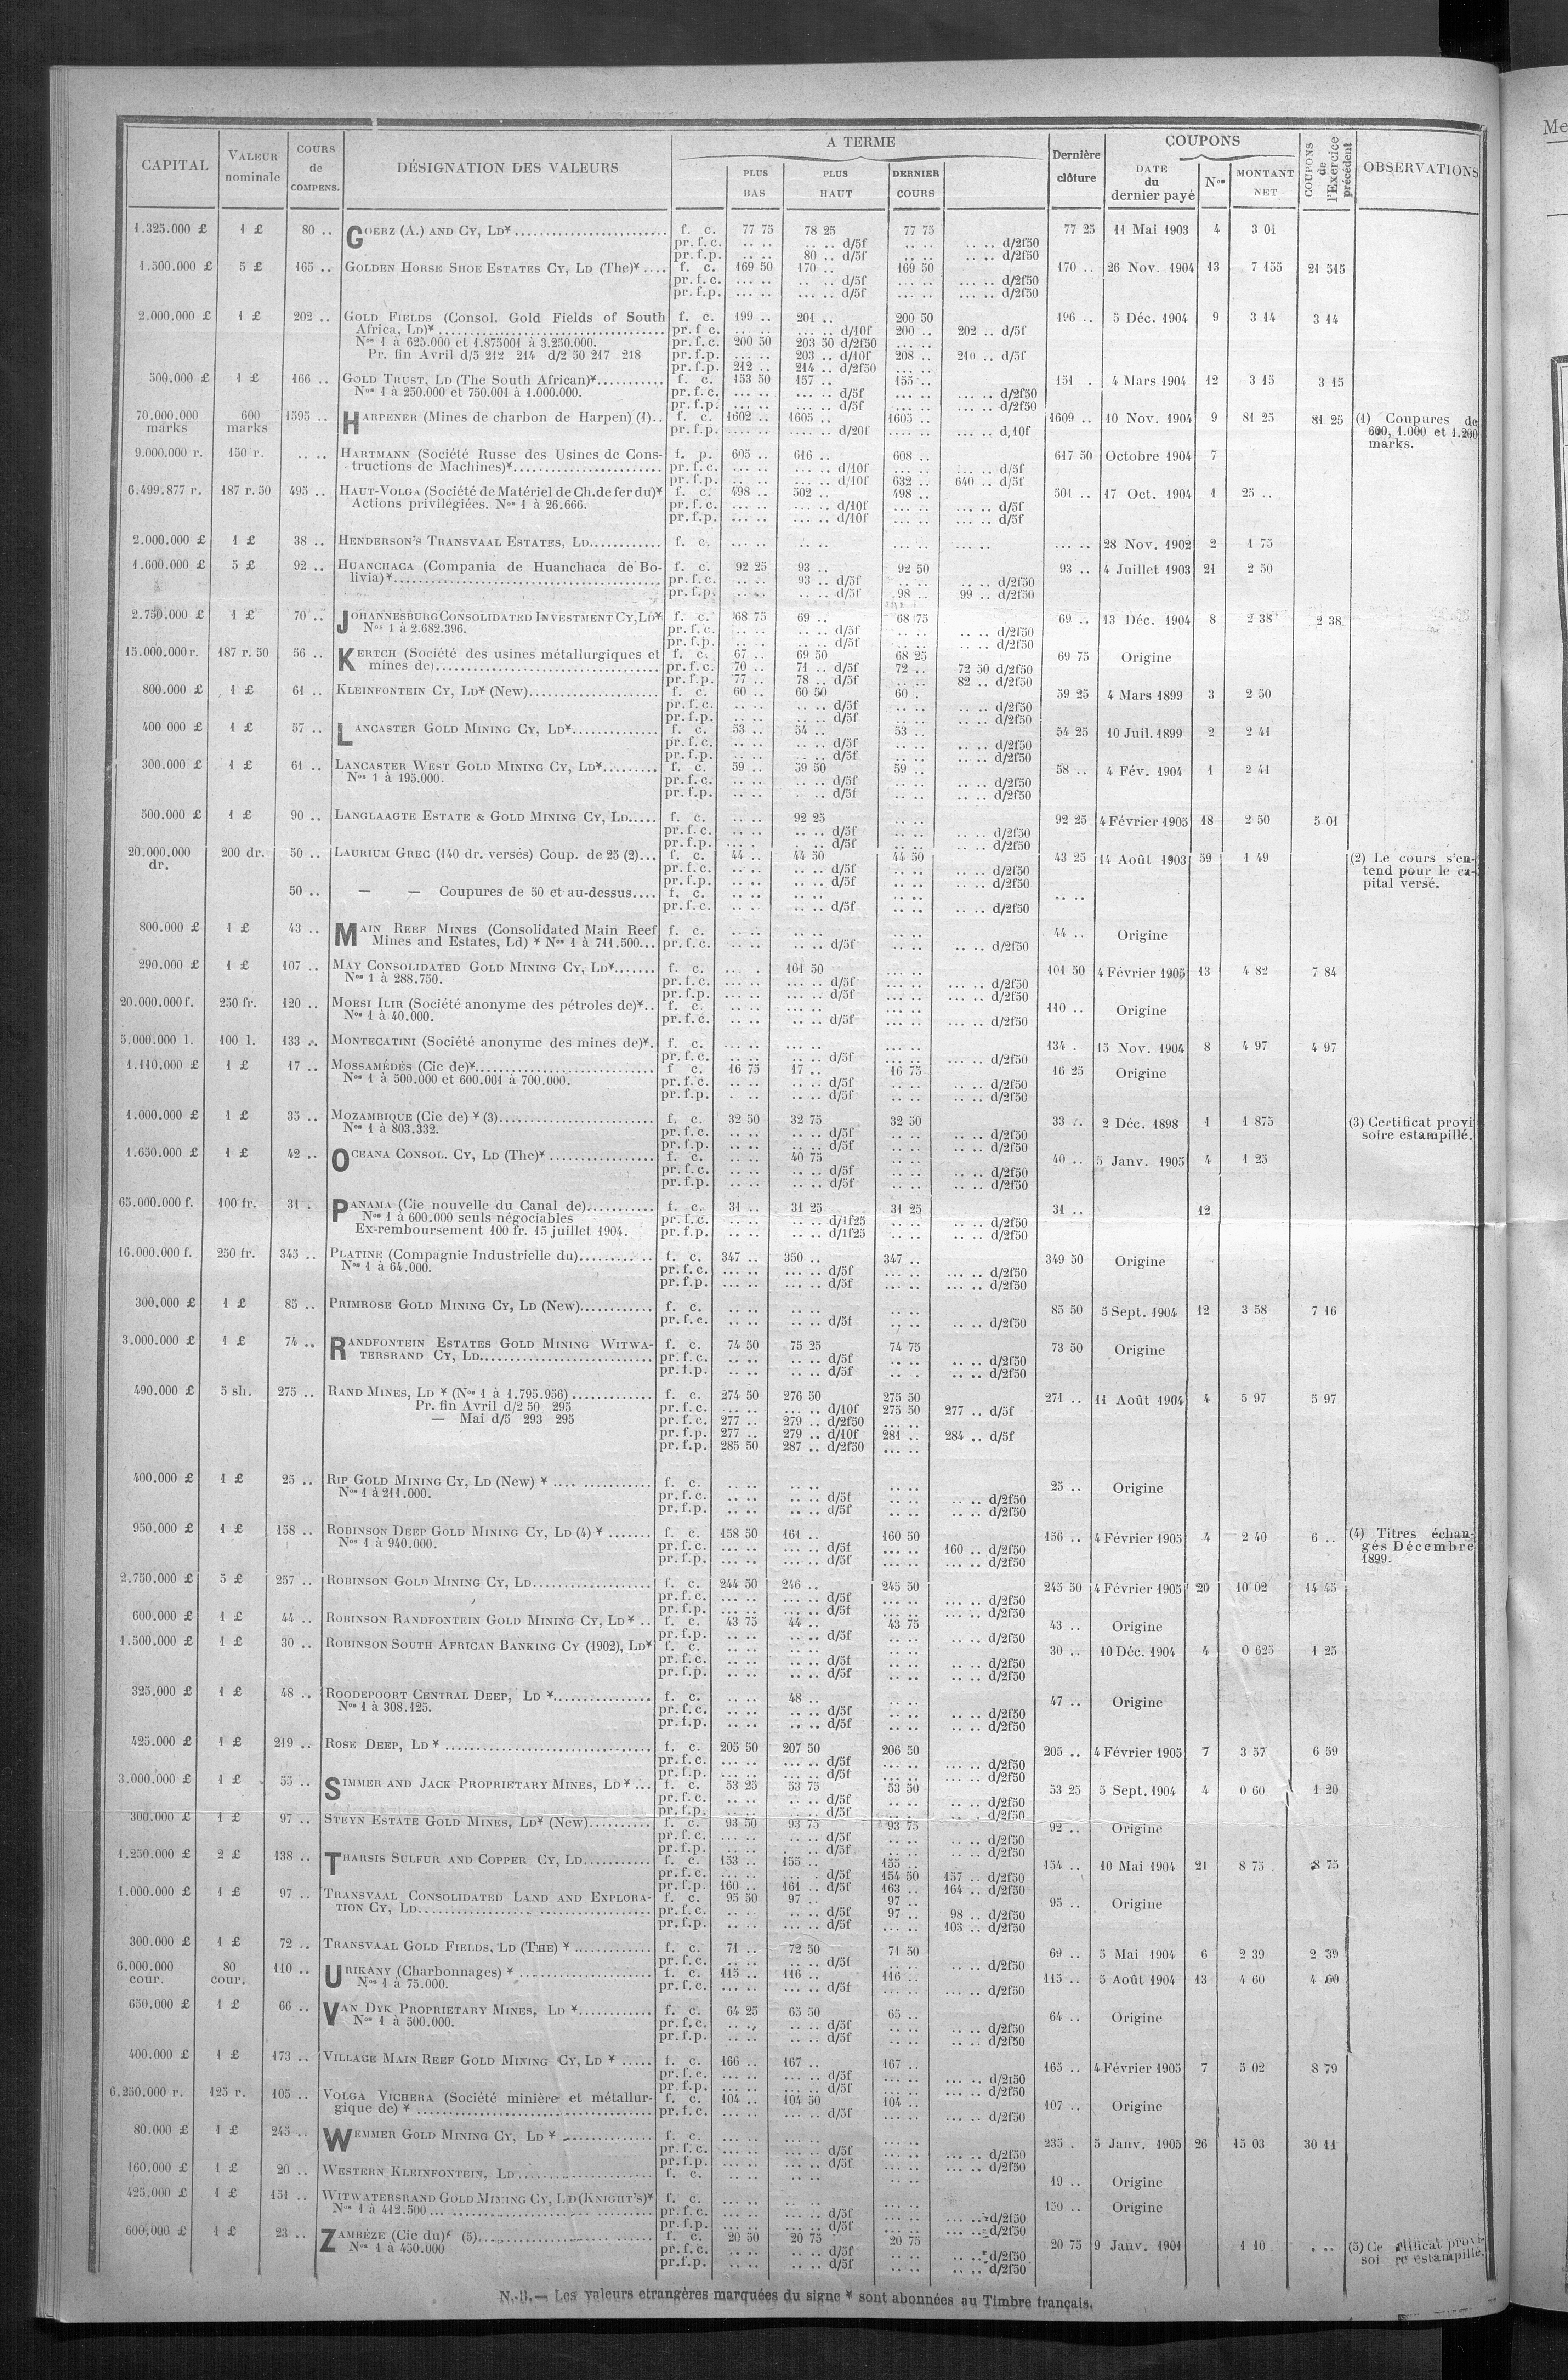 CAPITAL | VALEUR nominale | COURS de COMPENS. | DÉSIGNATION DES VALEURS | A TERME | PLUS BAS | PLUS HAUT | DERNIER COURS | Dernière clôture | COUPONS | DATE du dernier payé | Nos | MONTANT NET | COUPONS de l'Exercice précédent | OBSERVATIONS
1.325.000 £ 1 £ 80 .. GOERZ (A.) AND CY, LD* f. c. 77 75 78 25 77 75 77 25 11 Mai 1903 4 3 01
pr. f. c. .. .. .. .. d/5f .. .. .. .. d/2f50
pr. f.p. .. .. 80 .. d/5f .. .. .. .. d/2f50
1.500.000 £ 5 £ 165 .. GOLDEN HORSE SHOE ESTATES CY, LD (The)* f. c. 169 50 170 .. 169 50 170 .. 26 Nov. 1904 13 7 155 21 515
pr. f.c. ... .. .. .. d/5f ... .. ... .. d/2f50
pr. f.p. ... .. ... .. d/5f ... .. ... .. d/2f50
2.000.000 £ 1 £ 202 .. GOLD FIELDS (Consol. Gold Fields of South f. c. 199 .. 201 .. 200 50 196 .. 5 Déc. 1904 9 3 14 3 14
Africa, LD)* pr. f c. ... .. ... .. d/10f 200 .. 202 .. d/5f
Nos 1 à 625.000 et 1.875001 à 3.250.000. pr. f.c. 200 50 203 50 d/2f50 ... ..
Pr. fin Avril d/5 212 214 d/2 50 217 218 pr. f.p. ... .. 203 .. d/10f 208 .. 210 .. d/5f
pr. f.p. 212 .. 214 .. d/2f50 ... ..
500.000 £ 1 £ 166 .. GOLD TRUST, LD (The South African)* f. c. 153 50 157 .. 155 .. 151 . 4 Mars 1904 12 3 15 3 15
Nos 1 à 250.000 et 750.001 à 1.000.000. pr. f.c. ... .. ... .. d/5f ... .. ... .. d/2f50
pr. f.p. ... .. ... .. d/5f ... .. ... .. d/2f50
70.000.000 marks 600 marks 1595 .. HARPENER (Mines de charbon de Harpen) (1).. f. c. 1602 .. 1605 .. 1605 .. 1609 .. 10 Nov. 1904 9 81 25 81 25 (1) Coupures de
pr. f.p. .... .. .... .. d/20f .... .. ... .. d,10f 600, 1.000 et 1.200
marks.
9.000.000 r. 150 r. .. .. HARTMANN (Société Russe des Usines de Cons- f. p. 605 .. 616 .. 608 .. 617 50 Octobre 1904 7
tructions de Machines)* pr. f.c. ... .. ... .. d/10f ... .. ... .. d/5f
pr. f.p. ... .. ... .. d/10f 632 .. 640 .. d/5f
6.499.877 r. 187 r. 50 495 .. HAUT-VOLGA (Société de Matériel de Ch. de fer du)* f. c. 498 .. 502 .. 498 .. 501 .. 17 Oct. 1904 1 25 ..
Actions privilégiées. Nos 1 à 26.666. pr. f.c. ... .. ... .. d/10f ... .. ... .. d/5f
pr. f.p. ... .. ... .. d/10f ... .. ... .. d/5f
2.000.000 £ 1 £ 38 .. HENDERSON'S TRANSVAAL ESTATES, LD f. c. ... .. .. .. ... .. ... .. ... .. 28 Nov. 1902 2 1 75
1.600.000 £ 5 £ 92 .. HUANCHACA (Compania de Huanchaca de Bo- f. c. 92 25 93 .. 92 50 93 .. 4 Juillet 1903 21 2 50
livia)* pr. f.c. .. .. 93 .. d/5f .. .. .. .. d/2f50
pr. f.p. .. .. .. .. d/5f 98 .. 99 .. d/2f50
2.750.000 £ 1 £ 70 .. JOHANNESBURG CONSOLIDATED INVESTMENT CY, LD* f. c. 68 75 69 .. 68 75 69 .. 13 Déc. 1904 8 2 38 2 38
Nos 1 à 2.682.396. pr. f.c. .. .. .. .. d/5f .. .. .. .. d/2f50
pr. f.p. .. .. .. .. d/5f .. .. .. .. d/2f50
15.000.000 r. 187 r. 50 56 .. KERTCH (Société des usines métallurgiques et f. c. 67 .. 69 50 68 25 69 75 Origine
mines de) pr. f.c. 70 .. 71 .. d/5f 72 .. 72 50 d/2f50
pr. f.p. 77 .. 78 .. d/5f 82 .. d/2f50
800.000 £ 1 £ 61 .. KLEINFONTEIN CY, LD* (New) f. c. 60 .. 60 50 60 .. 59 25 4 Mars 1899 3 2 50
pr. f.c. .. .. .. .. d/5f .. .. .. .. d/2f50
pr. f.p. .. .. .. .. d/5f .. .. .. .. d/2f50
400 000 £ 1 £ 57 .. LANCASTER GOLD MINING CY, LD* f. c. 53 .. 54 .. 53 .. 54 25 10 Juil. 1899 2 2 41
pr. f.c. .. .. .. .. d/5f .. .. .. .. d/2f50
pr. f.p. .. .. .. .. d/5f .. .. .. .. d/2f50
300.000 £ 1 £ 61 .. LANCASTER WEST GOLD MINING CY, LD* f. c. 59 .. 59 50 59 .. 58 .. 4 Fév. 1904 1 2 41
Nos 1 à 195.000. pr. f.c. .. .. .. .. d/5f .. .. .. .. d/2f50
pr. f.p. .. .. .. .. d/5f .. .. .. .. d/2f50
500.000 £ 1 £ 90 .. LANGLAAGTE ESTATE & GOLD MINING CY, LD f. c. .. .. 92 25 .. .. 92 25 4 Février 1905 18 2 50 5 01
pr. f.c. .. .. .. .. d/5f .. .. .. .. d/2f50
pr. f.p. .. .. .. .. d/5f .. .. .. .. d/2f50
20.000.000 dr. 200 dr. 50 .. LAURIUM GREC (140 dr. versés) Coup. de 25 (2)... f. c. 44 .. 44 50 44 50 43 25 14 Août 1903 59 1 49 (2) Le cours s'en-
pr. f.c. .. .. .. .. d/5f .. .. .. .. d/2f50 tend pour le ca-
pr. f.p. .. .. .. .. d/5f .. .. .. .. d/2f50 pital versé.
50 .. — — Coupures de 50 et au-dessus.... f. c. .. .. .. .. .. .. .. ..
pr. f.c. .. .. .. .. d/5f .. .. .. .. d/2f50
800.000 £ 1 £ 43 .. MAIN REEF MINES (Consolidated Main Reef f. c. .. .. .. .. .. .. 44 .. Origine
Mines and Estates, Ld) * Nos 1 à 711.500... pr. f.c. .. .. .. .. d/5f .. .. .. .. d/2f50
290.000 £ 1 £ 107 .. MAY CONSOLIDATED GOLD MINING CY, LD* f. c. ... . 101 50 ... .. 101 50 4 Février 1905 13 4 82 7 84
Nos 1 à 288.750. pr. f.c. ... .. ... .. d/5f ... .. ... .. d/2f50
pr. f.p. ... .. ... .. d/5f ... .. ... .. d/2f50
20.000.000 f. 250 fr. 120 .. MOESI ILIR (Société anonyme des pétroles de)*.. f. c. ... .. ... .. ... .. 110 .. Origine
Nos 1 à 40.000. pr. f.c. ... .. ... .. d/5f ... .. ... .. d/2f50
5.000.000 l. 100 l. 133 .. MONTECATINI (Société anonyme des mines de)*. f. c. ... .. ... .. ... .. 134 . 15 Nov. 1904 8 4 97 4 97
pr. f.c. ... .. ... .. d/5f ... .. ... .. d/2f50
1.110.000 £ 1 £ 17 .. MOSSAMÉDÈS (Cie de)* f c. 16 75 17 .. 16 75 16 25 Origine
Nos 1 à 500.000 et 600.001 à 700.000. pr. f.c. .. .. .. .. d/5f .. .. .. .. d/2f50
pr. f.p. .. .. .. .. d/5f .. .. .. .. d/2f50
1.000.000 £ 1 £ 35 .. MOZAMBIQUE (Cie de) * (3) f. c. 32 50 32 75 32 50 33 .. 2 Déc. 1898 1 1 875 (3) Certificat provi
Nos 1 à 803.332. pr. f.c. .. .. .. .. d/5f .. .. .. .. d/2f50 soire estampillé.
pr. f.p. .. .. .. .. d/5f .. .. .. .. d/2f50
1.650.000 £ 1 £ 42 .. OCEANA CONSOL. CY, LD (The)* f. c. .. .. 40 75 .. .. 40 .. 5 Janv. 1905 4 1 25
pr. f.c. .. .. .. .. d/5f .. .. .. .. d/2f50
pr. f.p. .. .. .. .. d/5f .. .. .. .. d/2f50
65.000.000 f. 100 fr. 31 . PANAMA (Cie nouvelle du Canal de) f. c. 31 .. 31 25 31 25 31 .. 12
Nos 1 à 600.000 seuls négociables pr. f.c. .. .. .. .. d/1f25 .. .. .. .. d/2f50
Ex-remboursement 100 fr. 15 juillet 1904. pr. f.p. .. .. .. .. d/1f25 .. .. .. .. d/2f50
16.000.000 f. 250 fr. 345 .. PLATINE (Compagnie Industrielle du) f. c. 347 .. 350 .. 347 .. 349 50 Origine
Nos 1 à 64.000. pr. f.c. ... .. ... .. d/5f ... .. ... .. d/2f50
pr. f.p. ... .. ... .. d/5f ... .. ... .. d/2f50
300.000 £ 1 £ 85 .. PRIMROSE GOLD MINING CY, LD (New) f. c. .. .. .. .. .. .. 85 50 5 Sept. 1904 12 3 58 7 16
pr. f.c. .. .. .. .. d/5f .. .. d/2f50
3.000.000 £ 1 £ 74 .. RANDFONTEIN ESTATES GOLD MINING WITWA- f. c. 74 50 75 25 74 75 73 50 Origine
TERSRAND CY, LD pr. f.c. .. .. .. .. d/5f .. .. .. .. d/2f50
pr. f.p. .. .. .. .. d/5f .. .. .. .. d/2f50
490.000 £ 5 sh. 275 .. RAND MINES, LD * (Nos 1 à 1.795.956) f. c. 274 50 276 50 275 50 271 .. 11 Août 1904 4 5 97 5 97
Pr. fin Avril d/2 50 295 pr. f.c. ... .. ... .. d/10f 275 50 277 .. d/5f
— Mai d/5 293 295 pr. f.c. 277 .. 279 .. d/2f50 ... ..
pr. f.p. 277 .. 279 .. d/10f 281 .. 284 .. d/5f
pr. f.p. 285 50 287 .. d/2f50 ... ..
400.000 £ 1 £ 25 .. RIP GOLD MINING CY, LD (New) * f. c. .. .. .. .. .. .. 25 .. Origine
Nos 1 à 211.000. pr. f.c. .. .. .. .. d/5f .. .. .. .. d/2f50
pr. f.p. .. .. .. .. d/5f .. .. .. .. d/2f50
950.000 £ 1 £ 158 .. ROBINSON DEEP GOLD MINING CY, LD (4) * f. c. 158 50 161 .. 160 50 156 .. 4 Février 1905 4 2 40 6 .. (4) Titres échan-
Nos 1 à 940.000. pr. f.c. ... .. ... .. d/5f ... .. 160 .. d/2f50 gés Décembre
pr. f.p. ... .. ... .. d/5f ... .. ... .. d/2f50 1899.
2.750.000 £ 5 £ 257 .. ROBINSON GOLD MINING CY, LD f. c. 244 50 246 .. 245 50 245 50 4 Février 1905 20 10 02 14 45
pr. f.c. ... .. ... .. d/5f ... .. ... .. d/2f50
pr. f.p. ... .. ... .. d/5f ... .. ... .. d/2f50
600.000 £ 1 £ 44 .. ROBINSON RANDFONTEIN GOLD MINING CY, LD* .. f. c. 43 75 44 .. 43 75 43 .. Origine
pr. f.p. .. .. .. .. d/5f .. .. .. .. d/2f50
1.500.000 £ 1 £ 30 .. ROBINSON SOUTH AFRICAN BANKING CY (1902), LD* f. c. .. .. .. .. .. .. 30 .. 10 Déc. 1904 4 0 625 1 25
pr. f.c. .. .. .. .. d/5f .. .. .. .. d/2f50
pr. f.p. .. .. .. .. d/5f .. .. .. .. d/2f50
325.000 £ 1 £ 48 .. ROODEPOORT CENTRAL DEEP, LD * f. c. .. .. 48 .. .. .. 47 .. Origine
Nos 1 à 308.125. pr. f.c. .. .. .. .. d/5f .. .. .. .. d/2f50
pr. f.p. .. .. .. .. d/5f .. .. .. .. d/2f50
425.000 £ 1 £ 219 .. ROSE DEEP, LD * f. c. 205 50 207 50 206 50 205 .. 4 Février 1905 7 3 57 6 59
pr. f.c. ... .. ... .. d/5f ... .. ... .. d/2f50
pr. f.p. ... .. ... .. d/5f ... .. ... .. d/2f50
3.000.000 £ 1 £ 55 .. SIMMER AND JACK PROPRIETARY MINES, LD * ... f. c. 53 25 53 75 53 50 53 25 5 Sept. 1904 4 0 60 1 20
pr. f.c. .. .. .. .. d/5f .. .. .. .. d/2f50
pr. f.p. .. .. .. .. d/5f .. .. .. .. d/2f50
300.000 £ 1 £ 97 .. STEYN ESTATE GOLD MINES, LD* (New) f. c. 93 50 93 75 93 75 92 .. Origine
pr. f.c. .. .. .. .. d/5f .. .. .. .. d/2f50
pr. f.p. .. .. .. .. d/5f .. .. .. .. d/2f50
1.250.000 £ 2 £ 138 .. THARSIS SULFUR AND COPPER CY, LD f. c. 153 .. 155 .. 155 .. 154 .. 10 Mai 1904 21 8 75 8 75
pr. f.c. ... .. ... . d/5f 154 50 157 .. d/2f50
pr. f.p. 160 .. 161 .. d/5f 163 .. 164 .. d/2f50
1.000.000 £ 1 £ 97 .. TRANSVAAL CONSOLIDATED LAND AND EXPLORA- f. c. 95 50 97 .. 97 .. 95 .. Origine
TION CY, LD pr. f.c. .. .. .. .. d/5f 97 .. 98 .. d/2f50
pr. f.p. .. .. .. .. d/5f ... .. 103 .. d/2f50
300.000 £ 1 £ 72 .. TRANSVAAL GOLD FIELDS, LD (THE) * f. c. 71 .. 72 50 71 50 69 .. 5 Mai 1904 6 2 39 2 39
pr. f.c. .. .. .. .. d/5f .. .. .. .. d/2f50
6.000.000 cour. 80 cour. 110 .. URIKANY (Charbonnages) * f. c. 115 .. 116 .. 116 .. 115 .. 5 Août 1904 13 4 60 4 60
Nos 1 à 75.000. pr. f.c. ... .. ... .. d/5f ... .. ... .. d/2f50
650.000 £ 1 £ 66 .. VAN DYK PROPRIETARY MINES, LD * f. c. 64 25 65 50 65 .. 64 .. Origine
Nos 1 à 500.000. pr. f.c. .. .. .. .. d/5f .. .. .. .. d/2f50
pr. f.p. .. .. .. .. d/5f .. .. .. .. d/2f50
400.000 £ 1 £ 173 .. VILLAGE MAIN REEF GOLD MINING CY, LD * ..... f. c. 166 .. 167 .. 167 .. 165 .. 4 Février 1905 7 5 02 8 79
pr. f.c. ... .. ... .. d/5f ... .. ... .. d/2f50
pr. f.p. ... .. ... .. d/5f ... .. ... .. d/2f50
6.250.000 r. 125 r. 105 .. VOLGA VICHERA (Société minière et métallur- f. c. 104 .. 104 50 104 .. 107 .. Origine
gique de) * pr. f.c. ... .. ... .. d/5f ... .. ... .. d/2f50
80.000 £ 1 £ 245 .. WEMMER GOLD MINING CY, LD * f. c. ... .. ... .. ... .. 235 . 5 Janv. 1905 26 15 03 30 11
pr. f.c. ... .. ... .. d/5f ... .. ... .. d/2f50
pr. f.p. ... .. ... .. d/5f ... .. ... .. d/2f50
160.000 £ 1 £ 20 .. WESTERN KLEINFONTEIN, LD f. c. .. .. .. .. .. .. 19 .. Origine
425.000 £ 1 £ 151 .. WITWATERSRAND GOLD MINING CY, LD (KNIGHT'S)* f. c. ... .. ... .. ... .. 150 .. Origine
Nos 1 à 412.500 pr. f.c. ... .. ... .. d/5f ... .. ... .. d/2f50
pr. f.p. ... .. ... .. d/5f ... .. ... .. d/2f50
600.000 £ 1 £ 23 .. ZAMBÈZE (Cie du)* (5) f. c. 20 50 20 75 20 75 20 75 9 Janv. 1901 1 10 . .. (5) Ce tificat provi-
Nos 1 à 450.000 pr. f.c. .. .. .. .. d/5f .. .. .. .. d/2f50 soi re estampillé.
pr. f.p. .. .. .. .. d/5f .. .. .. .. d/2f50
N.-B. — Les valeurs etrangères marquées du signe * sont abonnées au Timbre français.
Me